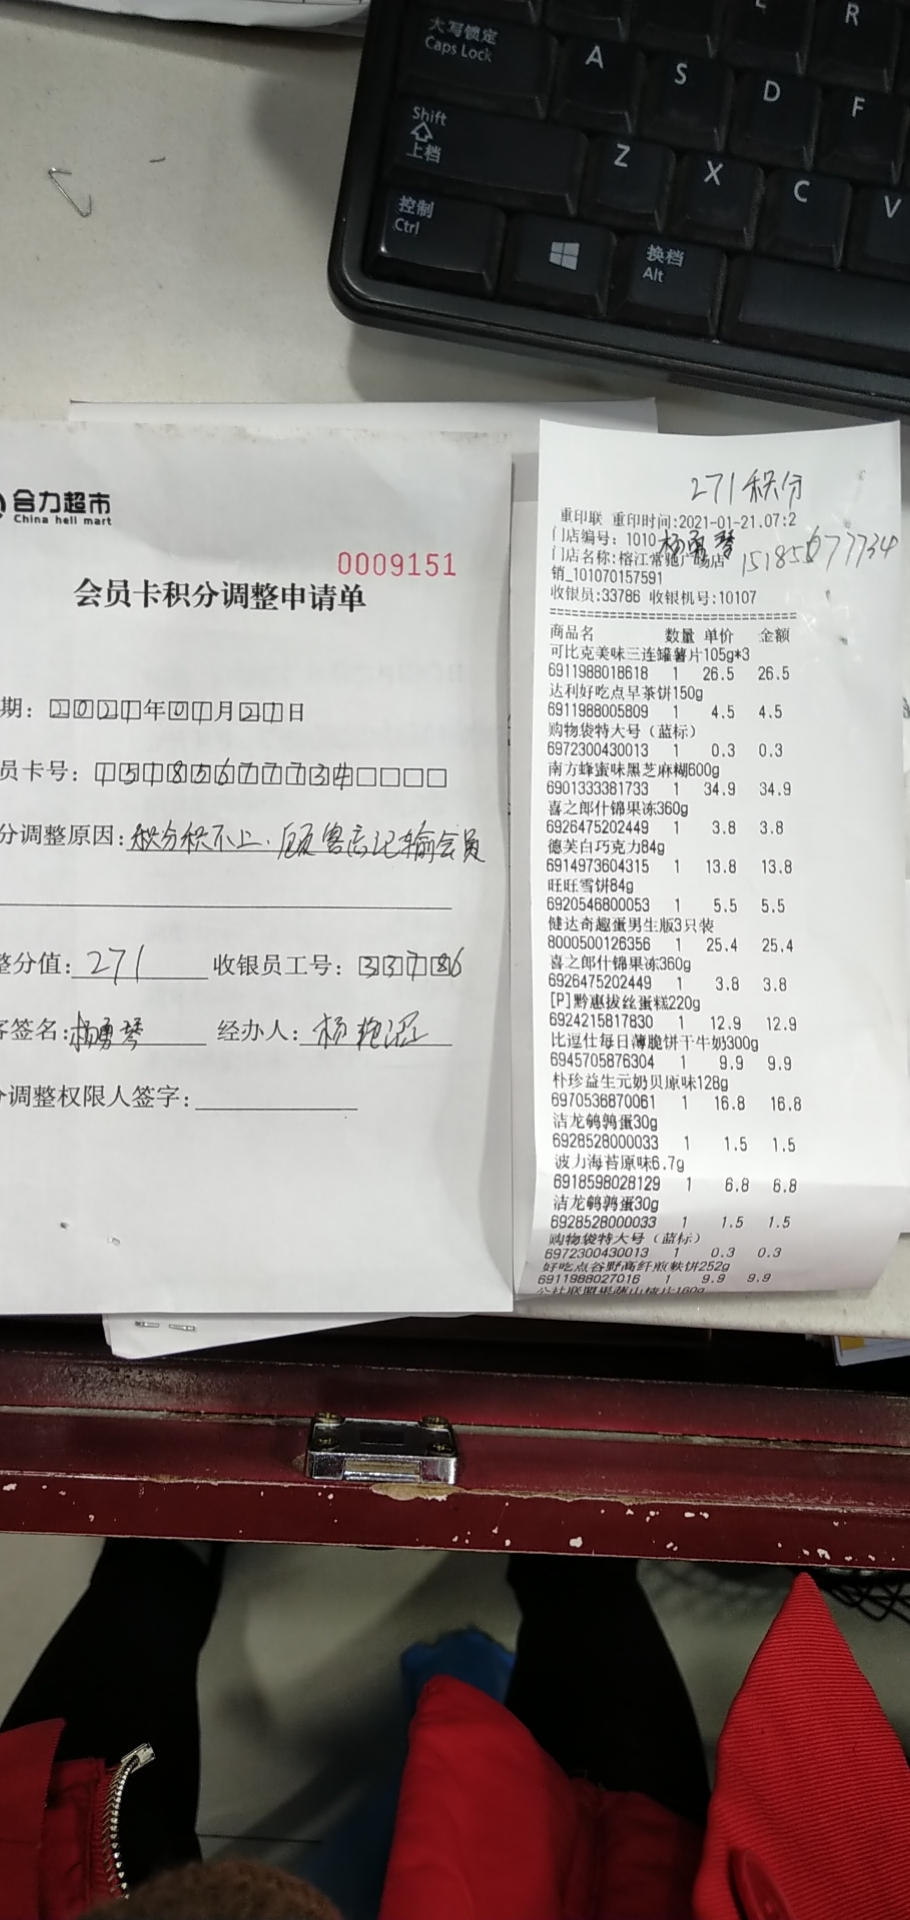 大写锁定
Caps Lock
A
S
D
F
R
Shift
上档
Z
X
C
V
控制
Ctrl
换档
Alt
合力超市
China heli mart
0009151
会员卡积分调整申请单
期：2021年01月21日
员卡号：15185677734
分调整原因：积分积不上.顾客忘记输会员
整分值：271 收银员工号：33786
客签名：杨勇琴 经办人：杨
分调整权限人签字：
271积分
重印联 重印时间:2021-01-21.07:2
门店编号：1010 杨勇琴
门店名称:榕江常驰广场店 15185677734
销_101070157591
收银员:33786 收银机号:10107
商品名 数量 单价 金额
可比克美味三连罐薯片105g*3
6911988018618 1 26.5 26.5
达利好吃点早茶饼150g
6911988005809 1 4.5 4.5
购物袋特大号（蓝标）
6972300430013 1 0.3 0.3
南方蜂蜜味黑芝麻糊600g
6901333381733 1 34.9 34.9
喜之郎什锦果冻360g
6926475202449 1 3.8 3.8
德芙白巧克力84g
6914973604315 1 13.8 13.8
旺旺雪饼84g
6920546800053 1 5.5 5.5
健达奇趣蛋男生版3只装
8000500126356 1 25.4 25.4
喜之郎什锦果冻360g
6926475202449 1 3.8 3.8
[P]黔惠拔丝蛋糕220g
6924215817830 1 12.9 12.9
比逗仕每日薄脆饼干牛奶300g
6945705876304 1 9.9 9.9
朴珍益生元奶贝原味128g
6970536870061 1 16.8 16.8
洁龙鹌鹑蛋30g
6928528000033 1 1.5 1.5
波力海苔原味6.7g
6918598028129 1 6.8 6.8
洁龙鹌鹑蛋30g
6928528000033 1 1.5 1.5
购物袋特大号（蓝标）
6972300430013 1 0.3 0.3
好吃点谷野高纤煎麸饼252g
6911988027016 1 9.9 9.9